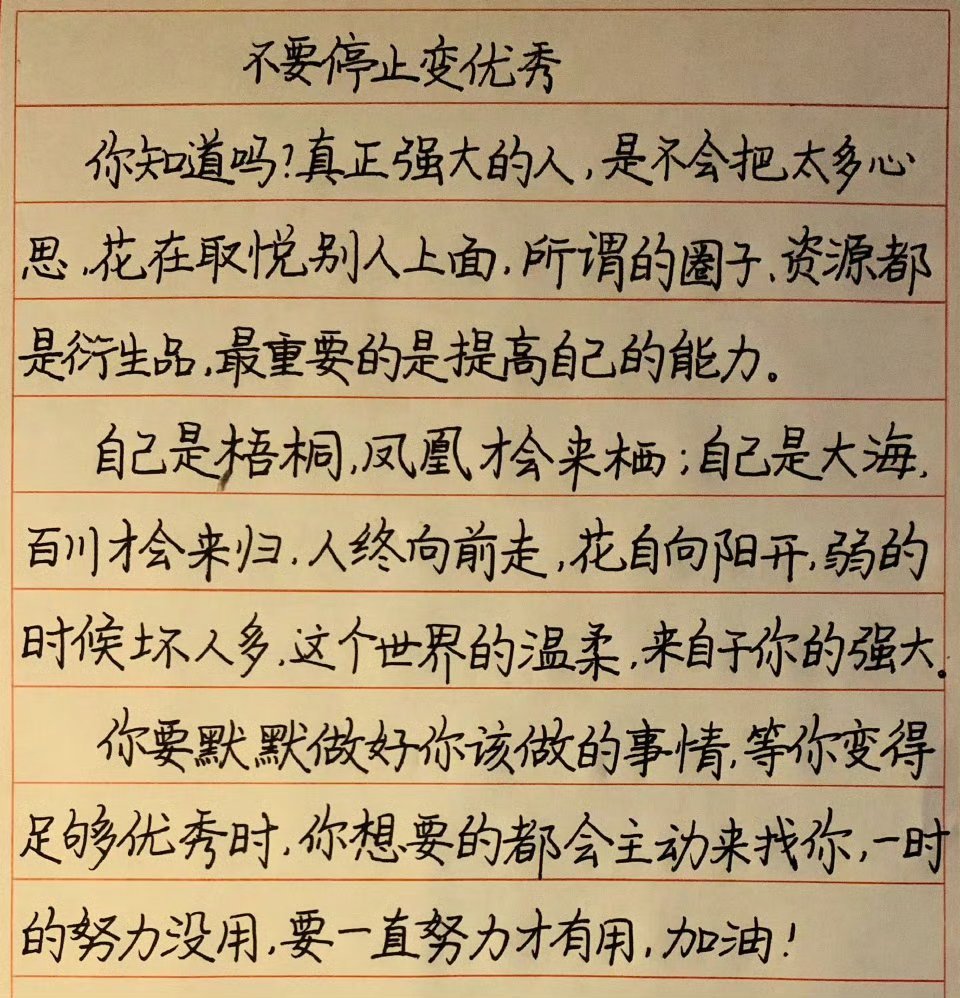 不要停止变优秀
你知道吗?真正强大的人,是不会把太多心
思,花在取悦别人上面,所谓的圈子,资源都
是衍生品,最重要的是提高自己的能力。
自己是梧桐,凤凰才会来栖;自己是大海,
百川才会来归,人终向前走,花自向阳开,弱的
时候坏人多,这个世界的温柔,来自于你的强大。
你要默默做好你该做的事情,等你变得
足够优秀时,你想要的都会主动来找你,一时
的努力没用,要一直努力才有用,加油!